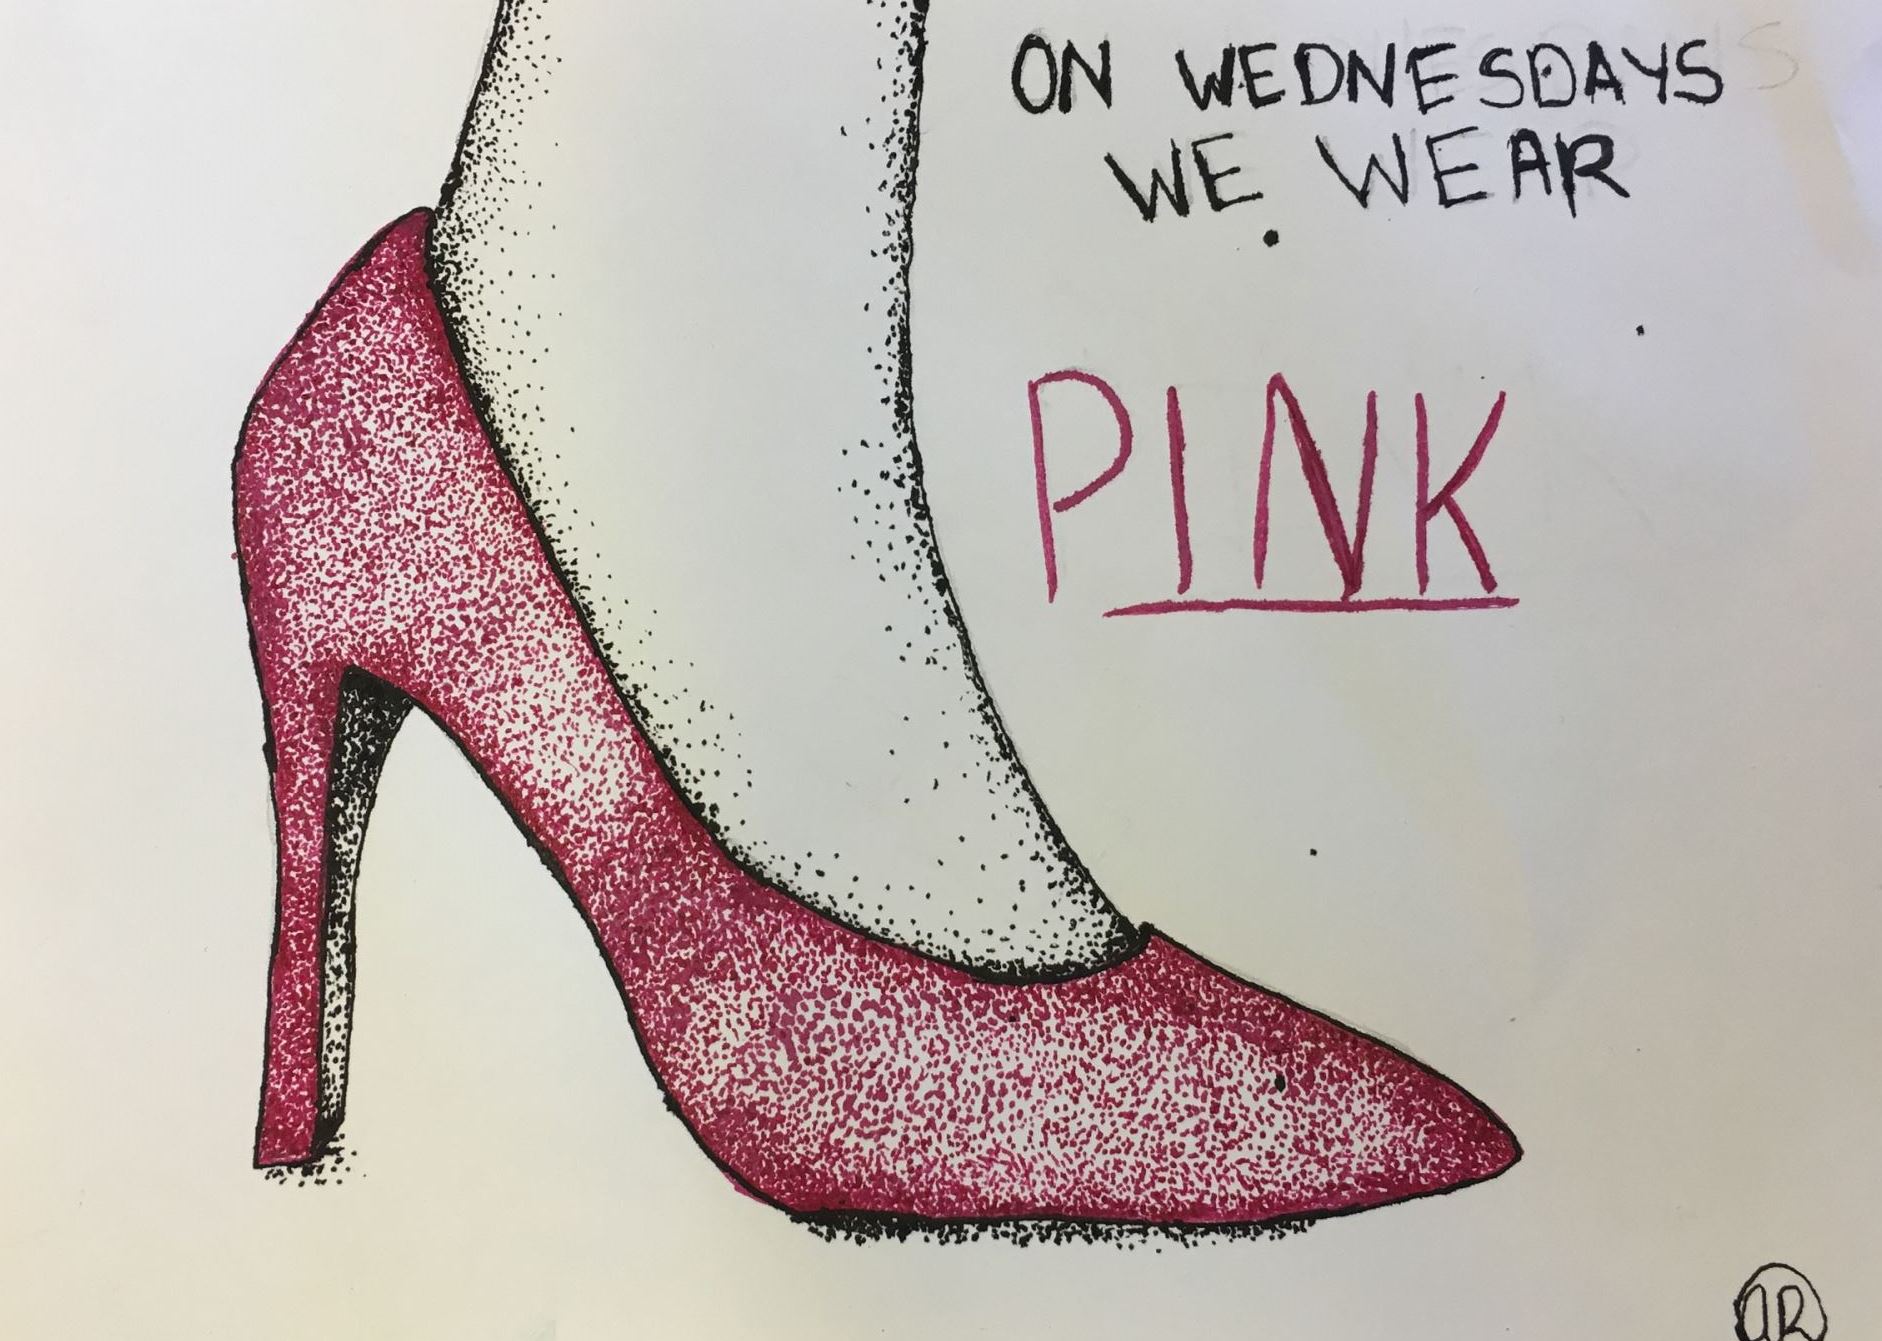 ON WEDNESDAYS
WE WEAR
PINK